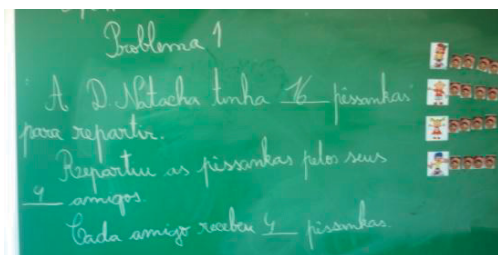 Problema 1
A D. Natacha tinha 16 pissankas
para repartir.
Repartiu as pissankas pelos seus
4 amigos.
Cada amigo recebeu 4 pissankas.